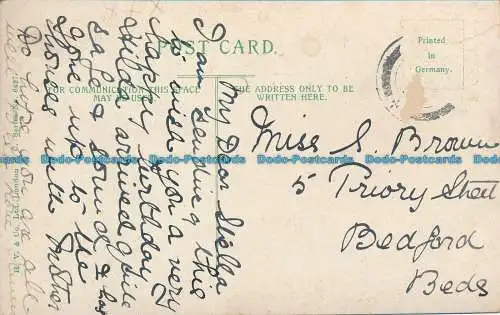 POST CARD.
FOR COMMUNICATION THIS SPACE
MAY BE USED
THE ADDRESS ONLY TO BE
WRITTEN HERE.
Printed
in
Germany.
My Dear Stella
I am sending this
to wish you a very
happy birthday
Hilda arrived quite
safe & sound & has
gone up to the
Shores with Mother
Do hope you are all
well
Miss S. Brown
5 Priory Street
Bedford
Beds
Dodo-Postcards Dodo-Postcards Dodo-Postcards Dodo-Postcards Dodo-Postcards Dodo-Postcards